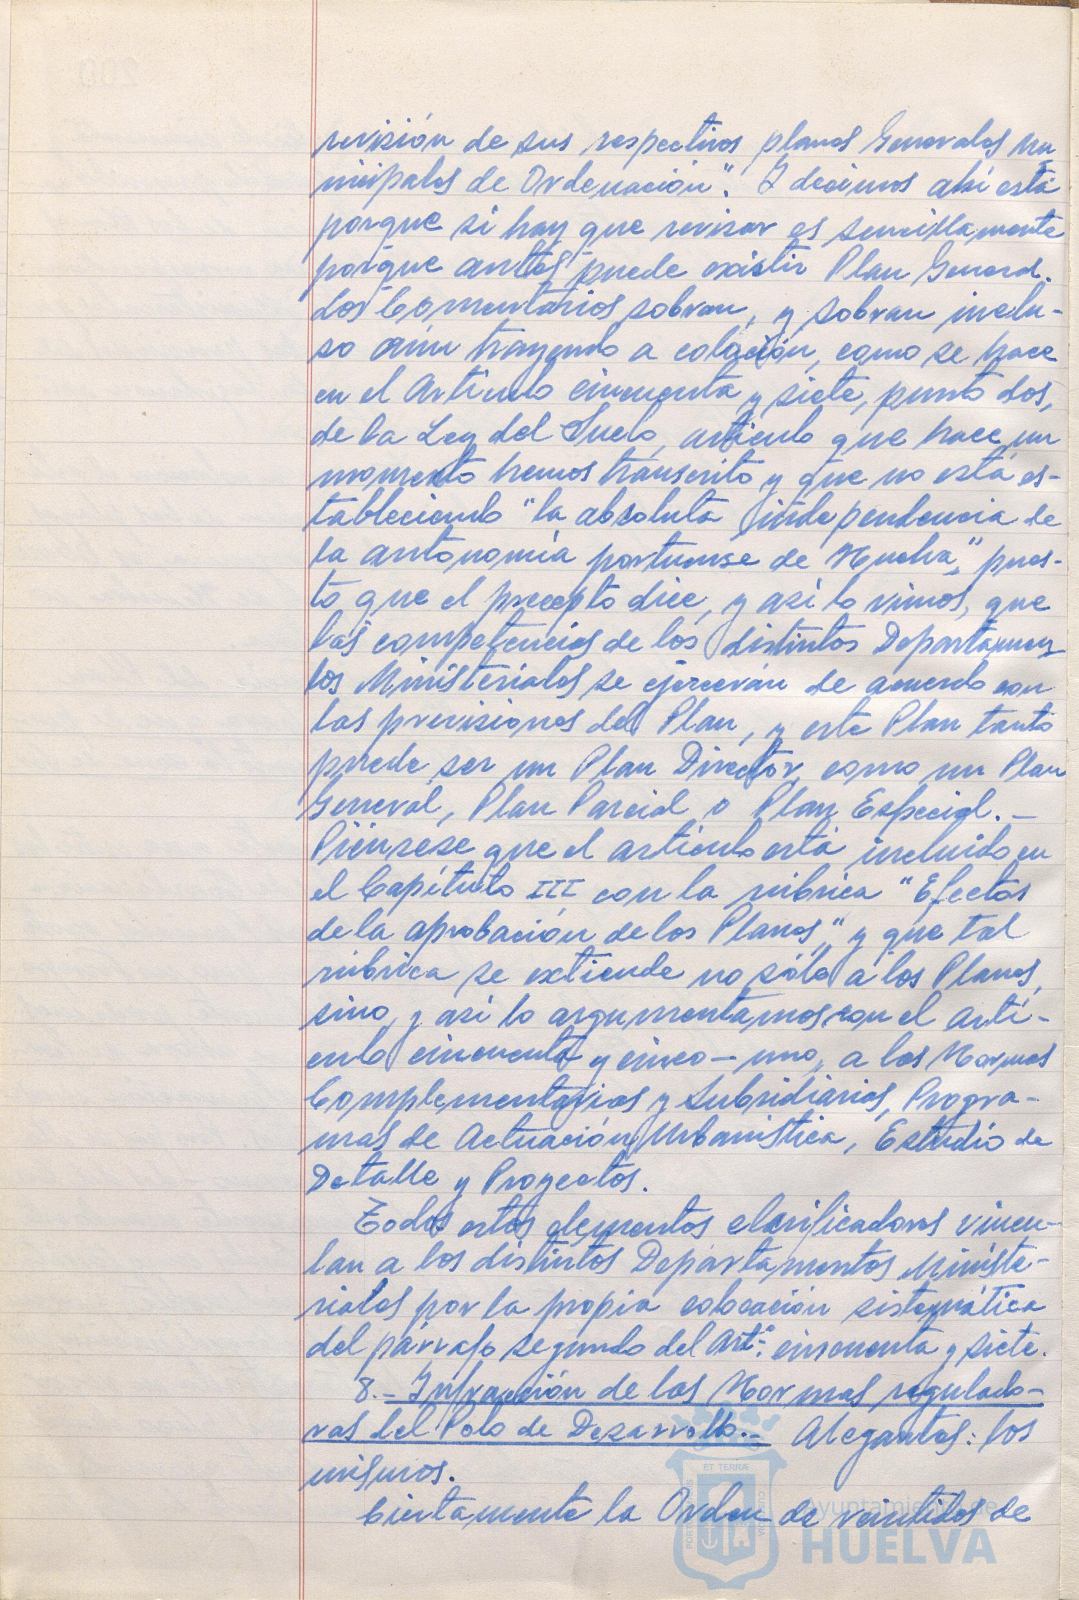 revisión de sus respectivos planes Generales Mu
nicipales de Ordenación". Y decimos ahí está
porque si hay que revisar es sencillamente
porque antes puede existir Plan General.
Los Comentarios sobran, y sobran inclu-
so aún trayendo a colación, como se hace
en el Artículo cincuenta y siete, punto dos,
de la Ley del Suelo, artículo que hace un
momento hemos transcrito y que no está es-
tableciendo "la absoluta independencia de
la autonomía portuense de Huelva", pues-
to que el precepto dice, y así lo vimos, que
las competencias de los distintos Departamen
tos Ministeriales se ejercerán de acuerdo con
las previsiones del Plan, y este Plan tanto
puede ser un Plan Director, como un Plan
General, Plan Parcial o Plan Especial.-
Piénsese que el artículo está incluido en
el Capítulo III con la rúbrica "Efectos
de la aprobación de los Planes," y que tal
rúbrica se extiende no sólo a los Planes,
sino, y así lo argumentamos con el artí-
culo cincuenta y cinco-uno, a las Normas
Complementarias y Subsidiarias, Progra-
mas de Actuación Urbanística, Estudio de
Detalle y Proyectos.
Todos estos elementos clarificadores vincu-
lan a los distintos Departamentos Ministe-
riales por la propia colocación sistemática
del párrafo segundo del Artº. cincuenta y siete.
8.- Infracción de las Normas regulado-
ras del Polo de Desarrollo.- Alegantes: los
mismos.
Ciertamente la Orden de veintidos de
ET TERRÆ
Ayuntamiento de
HUELVA